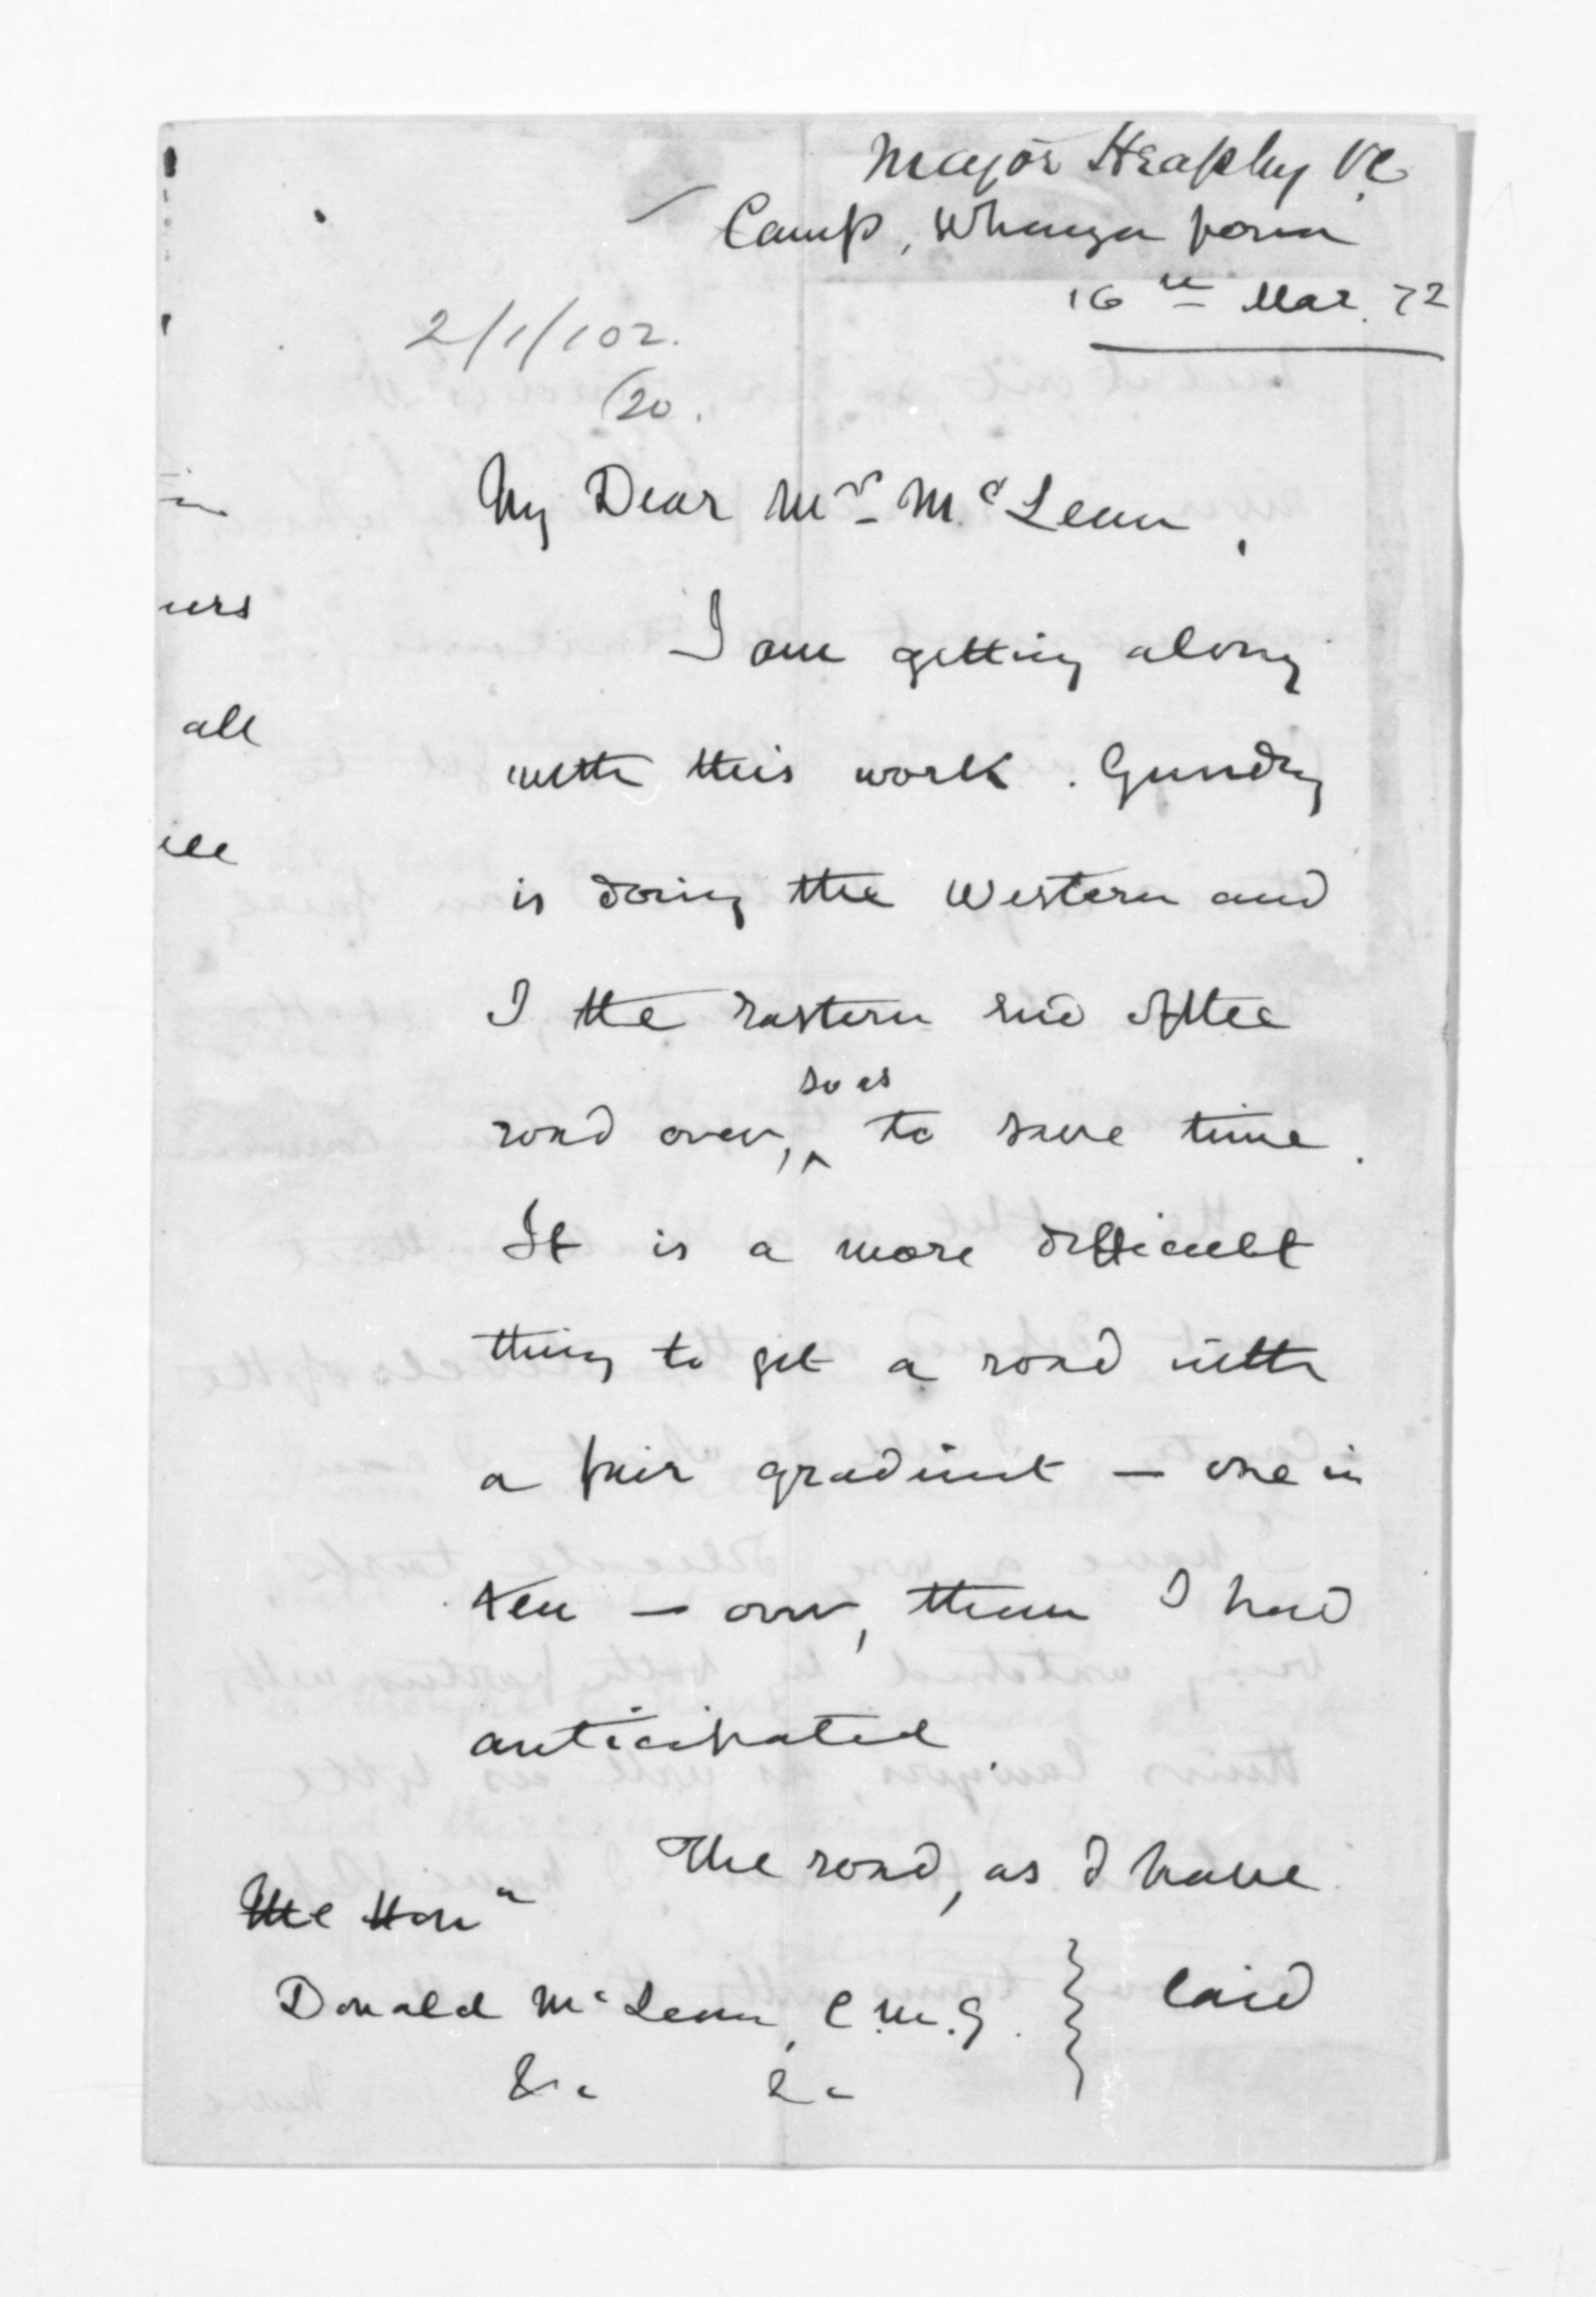 Major Heaphy VC
Camp, Whanga poua
16th Mar. 72
2/1/102.
(20.
My Dear Mr McLean,
I am getting along
urs
with this work. Gundry
all
is doing the Western and
ill
I the eastern end of the
so as
road over, ^ to save time.
It is a more difficult
thing to get a road with
a fair gradient — one in
ten — over, than I had
anticipated
The road, as I have
The Hon
Donald McLean, C.M.G. } laid
&c &c